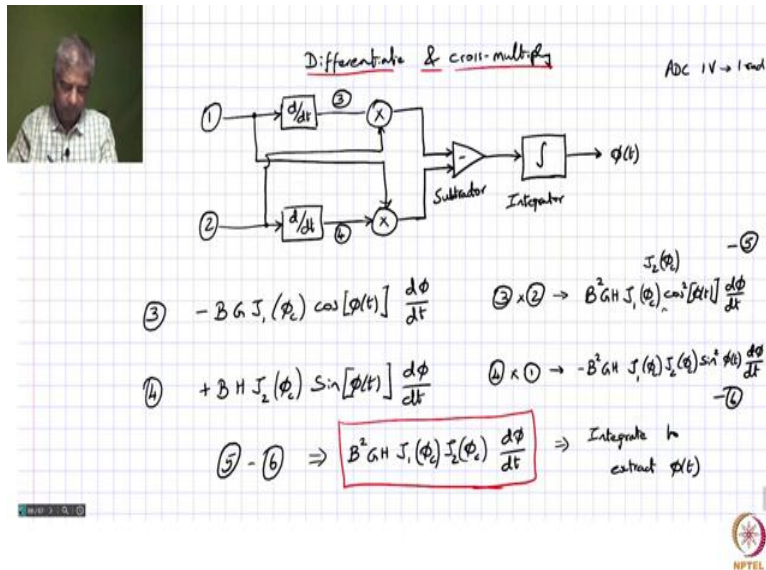 Differentiate & cross-multiply
ADC 1V → 1 rad
① d/dt ③ X
- ∫ → φ(t)
Subtractor Integrator
② d/dt ④ X
③ - B G J₁(φc) cos[φ(t)] dφ/dt
③ x ② → B² G H J₁(φc) J₂(φc) cos²[φ(t)] dφ/dt - ⑤
④ + B H J₂(φc) Sin[φ(t)] dφ/dt
④ x ① → -B² G H J₁(φc) J₂(φc) sin² φ(t) dφ/dt - ⑥
⑤ - ⑥ ⇒ B² G H J₁(φc) J₂(φc) dφ/dt ⇒ Integrate to
extract φ(t)
NPTEL